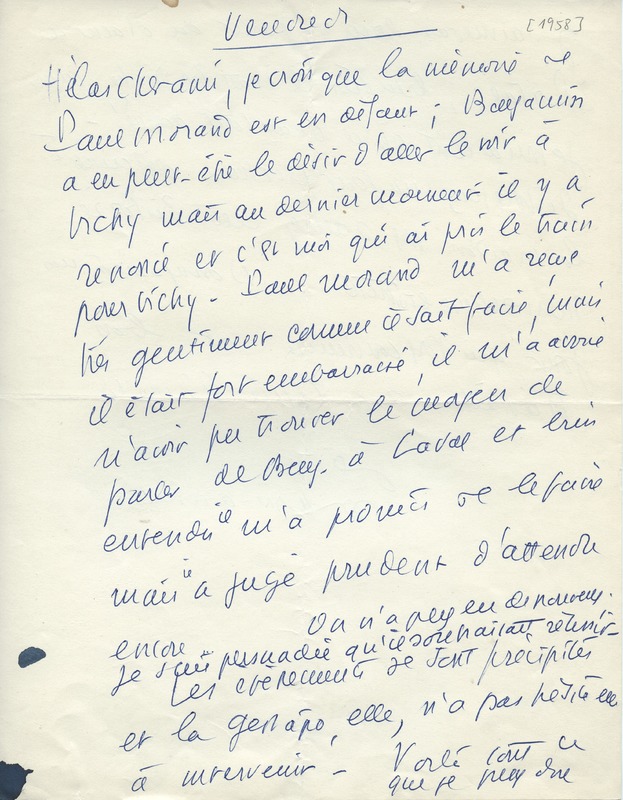 Vendredi
[1958]
Hélas Cher ami, je crois que la mémoire de
Paul Morand est en défaut ; Benjamin
a eu peut-être le désir d'aller le voir à
Vichy mais au dernier moment il y a
renoncé et c'est moi qui ai pris le train
pour Vichy - Paul Morand m'a reçue
très gentiment comme il sait faire, mais
il était fort embarrassé, il m'a avoué
n'avoir pu trouver le moyen de
parler de Benj. à Laval et bien
entendu il m'a promis de le faire
mais il a jugé prudent d'attendre
encore On n'a pas eu de nouveau.
Je suis persuadée qu'il souhaitait réussir -
Les évènements se sont précipités
et la gestapo, elle, n'a pas hésité
à intervenir - Voilà tout ce
que je peux dire